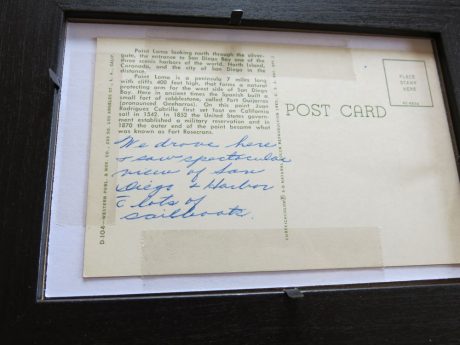 Point Loma looking north through the silver-
gate, the entrance to San Diego Bay one of the
three scenic harbors of the world. North Island,
Coronado, and the city of San Diego in the
distance.
Point Loma is a peninsula 7 miles long
with cliffs 400 feet high, that forms a natural
protecting arm for the west side of San Diego
Bay. Here in ancient times the Spanish built a
small fort of cobblestone, called Fort Guijarros
(pronounced Geeharros). On this point Juan
Rodriguez Cabrillo first set foot on California
soil in 1542. In 1852 the United States govern-
ment established a military reservation and in
1870 the outer end of the point became what
was known as Fort Rosecrans.
We drove here
& saw spectacular
view of San
Diego & Harbor
c̄ lots of
sailboats.
POST CARD
PLACE
STAMP
HERE
D-108—WESTERN PUBL. & NOV. CO.
LOS ANGELES ST., L. A., CALIF.